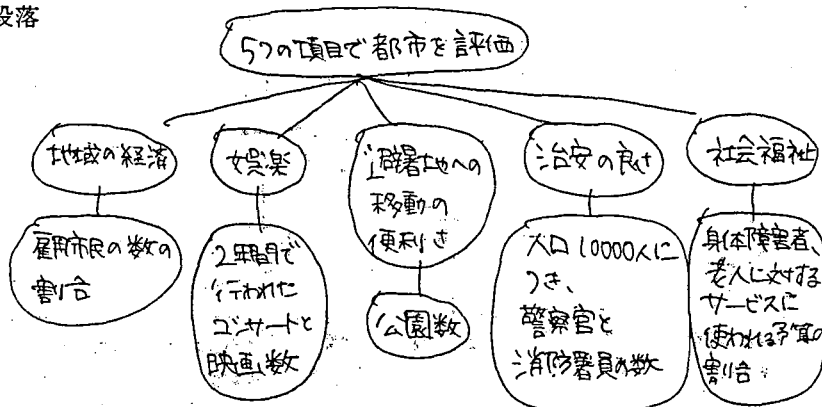 段落
5つの項目で都市を評価
地域の経済
雇用市民の数の
割合
娯楽
2年間で
行われた
コンサートと
映画数
避暑地への
移動の
便利さ
公園数
治安の良さ
人口10000人に
つき、
警察官と
消防署員の数
社会福祉
身体障害者、
老人に対する
サービスに
使われる予算の
割合